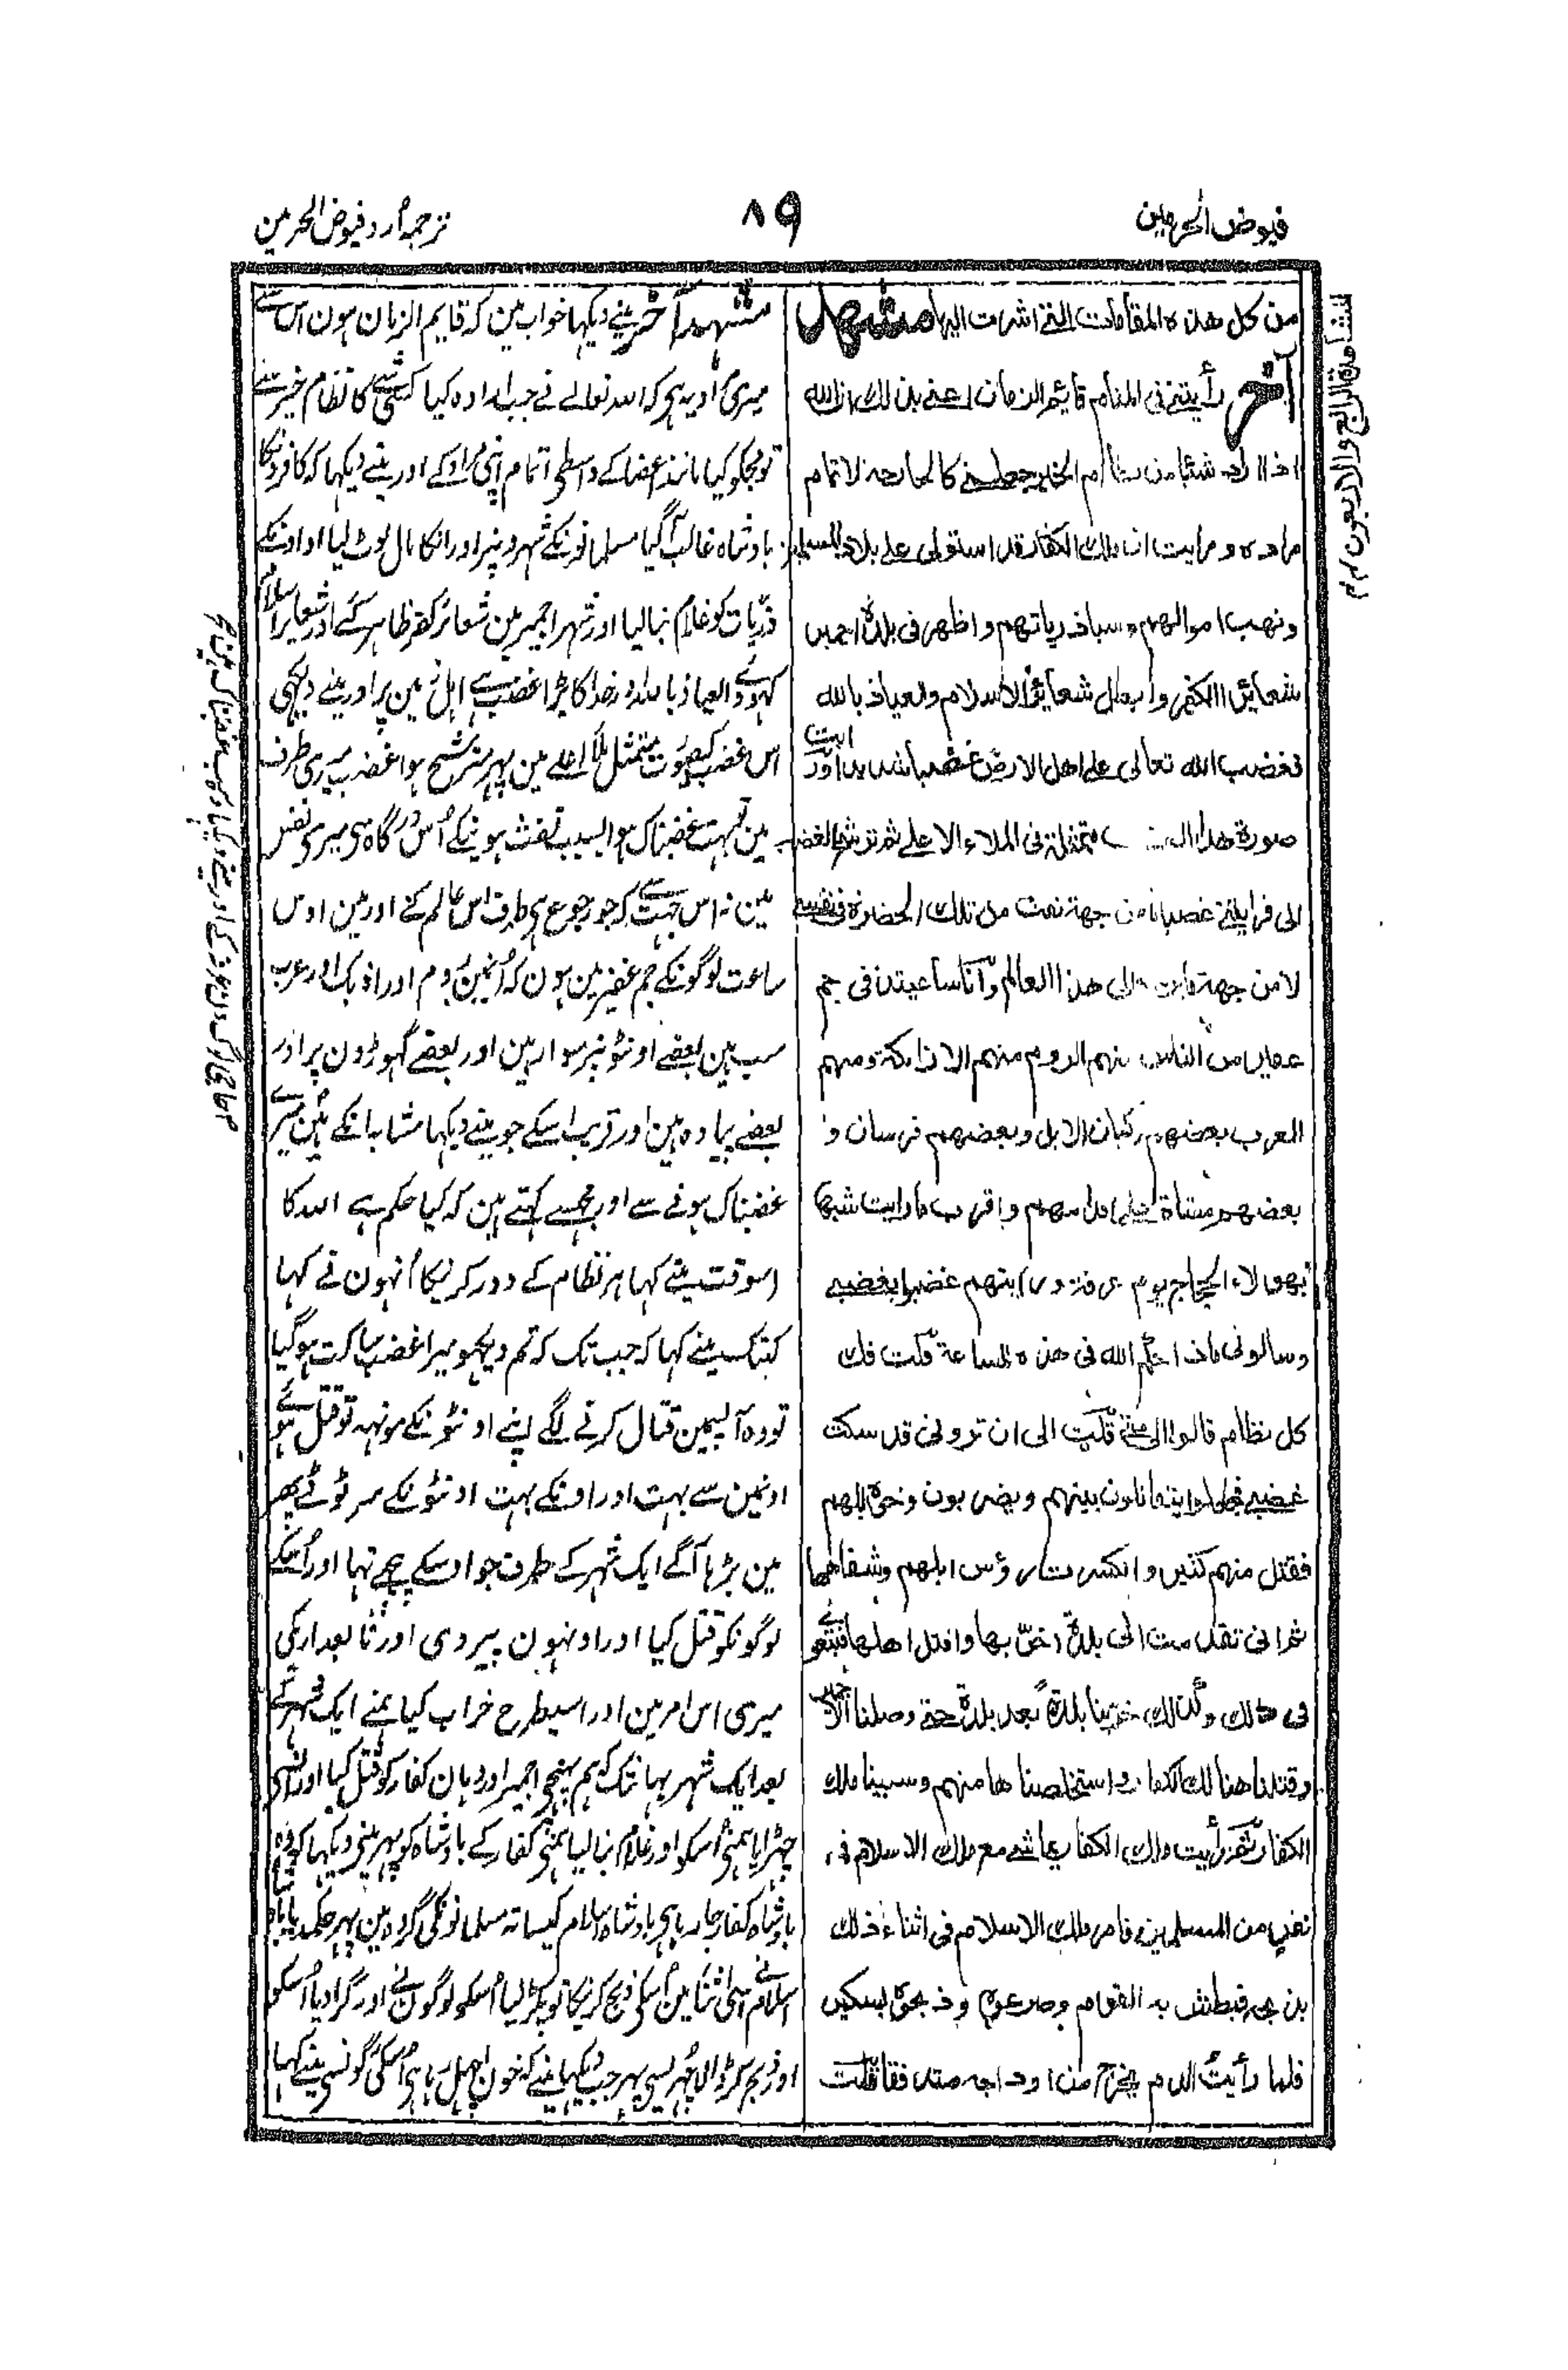 فیوض الحرمین
۸۹
ترجمہ اُردو فیوض الحرمین
من كل هذه المقامات التے اشرت اليها مشهد
آخر رأيتنے فى المنام قايم الزمان اعنے بذلك ان الله
اذا اراد شيئا من نظام الخير جعلنے كالجارحة لاتمام
مراده ورايت ان ملك الكفار قد استولى علے بلاد المسلمين
ونهب اموالهم وسبا ذرياتهم واظهر فى بلدة اجمير
شعائر الكفر وابطل شعائر الاسلام والعياذ بالله
فغضب الله تعالى على اهل الارض غضبا شديدا ورايت
صورة هذا متمثلة فى الملاء الاعلے ثم ترشح الغضب
الى فرايتنے غضبانا من جهة نفث من تلك الحضرة فى نفسے
لا من جهة الى هذا العالم وانا ساعتئذ فى جم
غفير من الناس منهم الروم منهم الازابكة ومنهم
العرب بعضهم ركبان الابل وبعضهم فرسان و
بعضهم مشاة على اقدامهم واقرب ما رايت شبها
بهولاء الحجاج يوم عرفة ورايتهم غضبوا بغضبے
وسالونى ماذا حكم الله فى هذه الساعة قلت فك
كل نظام قالوا الى متے قلت الى ان ترونى قد سكت
غضبے فجعلوا يتقاتلون بينهم ويضربون وجوه ابلهم
فقتل منهم كثير وانكسرت رؤس ابلهم وشفاهها
ثم انى تقدمت الى بلدة اخرّبها واقتل اهلها فتبعونے
فى ذلك وكذلك خربنا بلدة بعد بلدة حتے وصلنا الاجمير
وقتلنا هنالك الكفار واستخلصناها منهم وسبينا ملك
الكفار ثم رأيت ملك الكفار يماشے مع ملك الاسلام فى
نفر من المسلمين فامر ملك الاسلام فى اثناء ذلك
بذبحه فبطش به القوم وصرعوه وذبحوه بسكين
فلما رأيت الدم يخرج من اوداجه متدفقا قلت
مشہد آخر مینے دیکہا خواب مین کہ قایم الزمان ہون اس سے
میری مراد یہ ہی کہ اللہ تعالے نے جب ارادہ کیا کسی شے کا نظام خیر سے
تو مجکو کیا مانند اعضا کے واسطی اتمام اپنی مراد کے اور مینے دیکہا کہ کافرونکا
بادشاہ غالب آ گیا مسلمانونکے شہرونپر اور انکا مال لوٹ لیا اور اونکے
ذرّیات کو غلام بنالیا اور شہر اجمیر مین شعائر کفر ظاہر کئے اور شعایر اسلام
کہودئے والعیاذ باللہ اور خدا کا بڑا غضب ہے اہل زمین پر اور مینے دیکہی
اس غضب کیصورت متمثل ملاء اعلے مین پہر مترشح ہوا غضب میری طرف
مین بہت غضبناک ہوا بسبب نفث ہونیکے اُس درگاہ سی میری نفس
مین نہ اس جہت سے کہ جو رجوع ہی طرف اس عالم کے اور مین اوس
ساعت لوگونکے جم غفیر مین ہون کہ اُنمین روم اور ازبک اور عرب
سب ہین بعضے اونٹونپر سوار ہین اور بعضے گہوڑون پر اور
بعضے پیادہ ہین اور قریب اسکے جو مینے دیکہا مشابہ انکے ہین میرے
غضبناک ہونے سے اور مجہسے کہتے ہین کہ کیا حکم ہے اللہ کا
اسوقت مینے کہا ہر نظام کے دور کرنیکا اُنہون نے کہا
کبتک مینے کہا کہ جب تک کہ تم دیکہو میرا غضب ساکت ہوگیا
تو وہ آپسمین قتال کرنے لگے اپنے اونٹونکے مونہہ تو قتل ہوئے
اونمین سے بہت اور اونکے بہت اونٹونکے سر ٹوٹے پہر
مین بڑہا آگے ایک شہر کے طرف اور اُسکے
لوگونکو قتل کیا اور اونہون پیروی اور تابعداری کی
میری اس امر مین اور اسیطرح خراب کیا ہمنے ایک شہر کے
بعد ایک شہر یہانتک کہ ہم پہنچی اجمیر اور وہان کفار کو قتل کیا اور انسی
چہڑایا ہمنی اسکو اور غلام بنالیا ہمنی کفار کے بادشاہ کو پہر مینی دیکہا کہ وہ
بادشاہ کفار جارہا ہی بادشاہ اسلام کیساتہ مسلمانونکی گروہ مین پہر حکم دیا بادشاہ
اسلام نے اسی اثنا مین اُسکی ذبح کرنیکا تو پکڑ لیا اُسکو لوگون نے اور گرادیا اُسکو
اور ذبح کرڈالا چُہری سی پہر جب دیکہا مینے کہ خون اچہل رہا ہی اُسکی گونسی مینے کہا
المشاهدة الرابع والاربعون